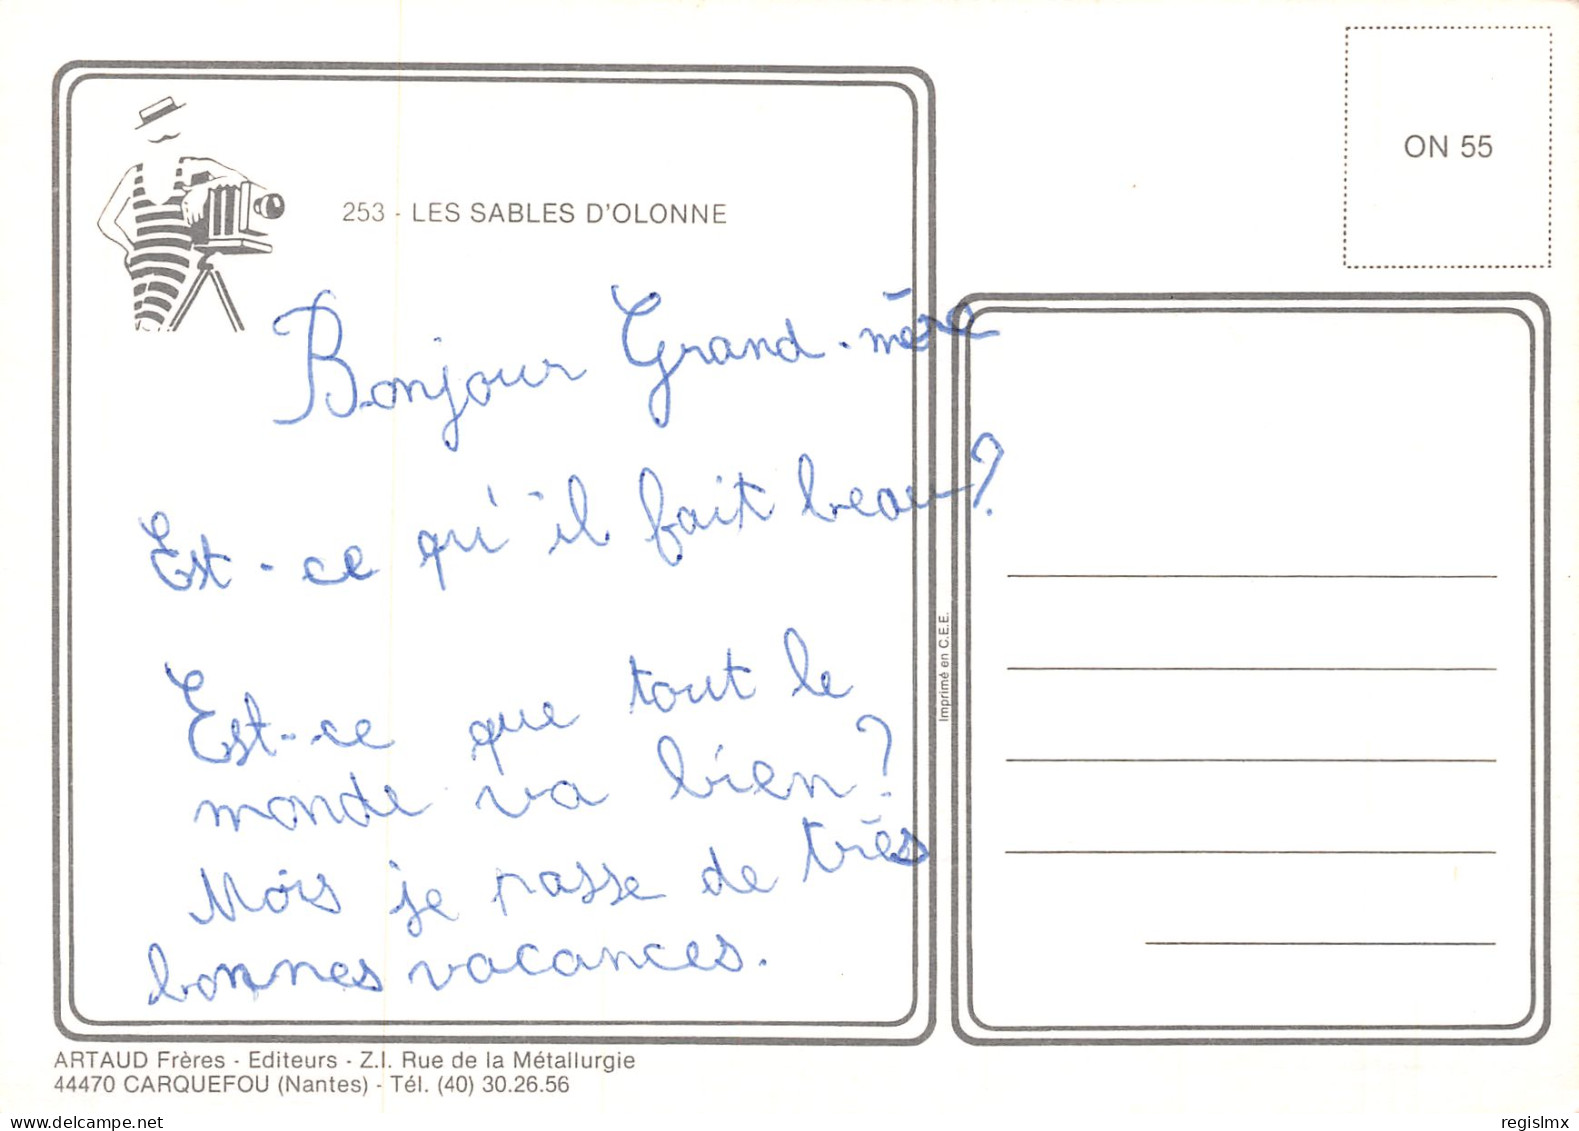 253 - LES SABLES D'OLONNE
Bonjour Grand-mère
Est-ce qu'il fait beau?
Est-ce que tout le
monde va bien?
Mois je passe de très
bonnes vacances.
ARTAUD Frères - Editeurs - Z.I. Rue de la Métallurgie
44470 CARQUEFOU (Nantes) - Tél. (40) 30.26.56
Imprimé en C.E.E.
ON 55
regislmx